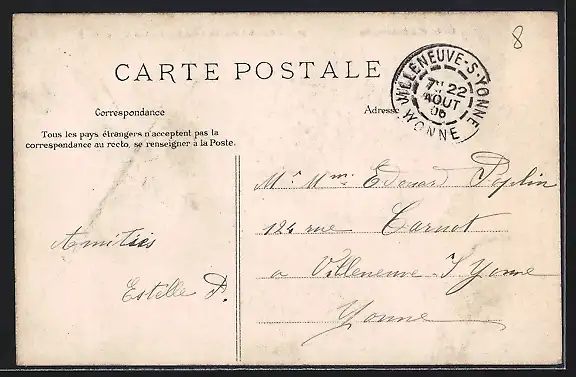 8
CARTE POSTALE
VILLENEUVE-S-YONNE
22
AOUT
06
YONNE
Correspondance
Adresse
Tous les pays étrangers n'acceptent pas la
correspondance au recto, se renseigner à la Poste.
Mr Mme Edouard
124 rue Carnot
a Villeneuve-s/Yonne
Yonne
Amitiés
Estelle P.